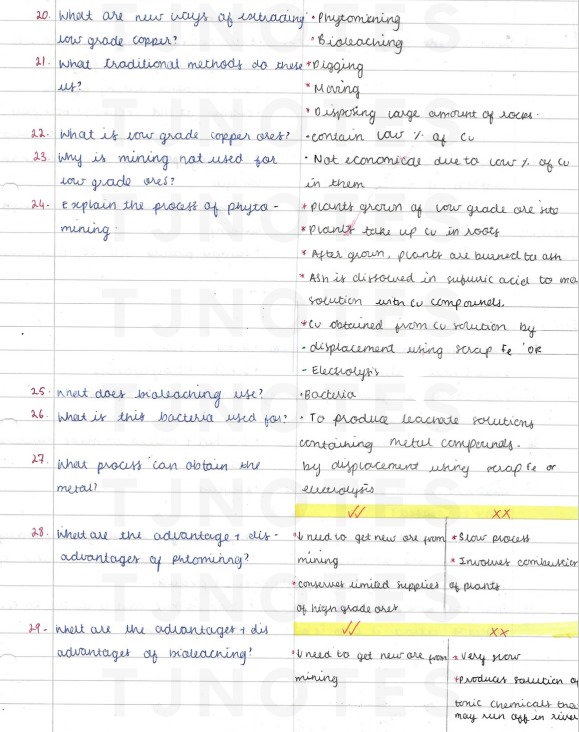 20. What are new ways of extracting • Phytomining
low grade copper? • Bioleaching
21. What traditional methods do these * Digging
us? * Moving
* Disposing large amount of rocks.
22. What is low grade copper ores? • contain low % of Cu
23. Why is mining not used for • Not economical due to low % of Cu
low grade ores? in them
24. Explain the process of phyto- * Plants grown of low grade ore site
mining. * Plants take up Cu in roots
* After grown, plants are burned to ash
* Ash is dissolved in sulfuric acid to ma
solution with Cu compounds.
* Cu obtained from Cu solution by
- displacement using scrap Fe OR
- Electrolysis
25. What does bioleaching use? • Bacteria
26. What is this bacteria used for? • To produce leachate solutions
containing metal compounds.
27. What process can obtain the by displacement using scrap Fe or
metal? electrolysis
✓✓ XX
28. What are the advantage + dis- * ↓ need to get new ore from * Slow process
advantages of phtomining? mining * Involves combustion
* conserves limited supplies of plants
of high grade ores
29. What are the advantages + dis ✓✓ XX
advantages of bioleaching? * ↓ need to get new ore from * Very slow
mining * Produces solution of
toxic chemicals tha
may run off in river
TJNOTES
TJNOTES
TJNOTES
TJNOTES
TJNOTES